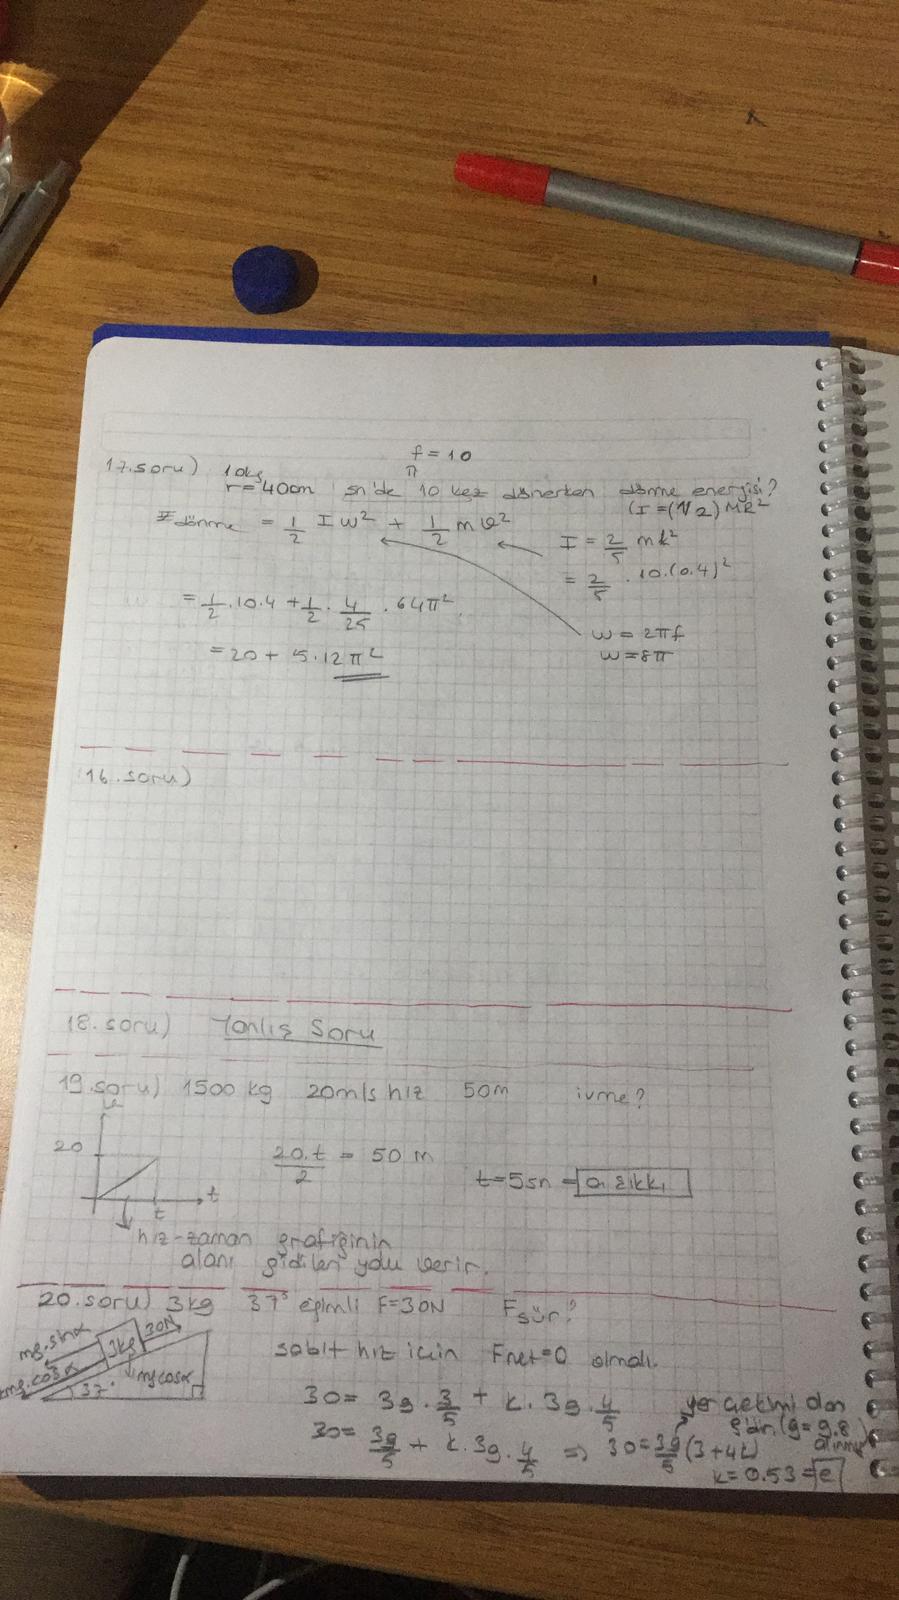 17.soru) 10kg f = 10
r = 40cm sn'de 10 kez dönerken dönme enerjisi?
π
(I = (1/2) MR²
Edönme = 1/2 I w² + 1/2 m v²
I = 2/5 mk²
= 2/5 . 10.(0.4)²
= 1/2 .10.4 + 1/2 . 4/25 . 64π²
w = 2πf
w = 8π
= 20 + 5.12π²
16.soru)
18.soru) Yanlış Soru
19.soru) 1500 kg 20m/s hız 50m ivme?
20
t
t
20.t/2 = 50 m
t=5sn = a şıkkı
hız-zaman grafiğinin
alanı gidilen yolu verir.
20.soru) 3kg 37° eğimli F=30N Fsür?
mg.sinα 3kg 30N
kmg.cosα 37° mgcosα
sabit hız için Fnet=0 olmalı.
30 = 3g . 3/5 + k. 3g . 4/5
yer çekiminden
30 = 3g/5 + k. 3g . 4/5 => 30 = 3g/5 (3+4k)
(g = 9.8)
k = 0.53 = e